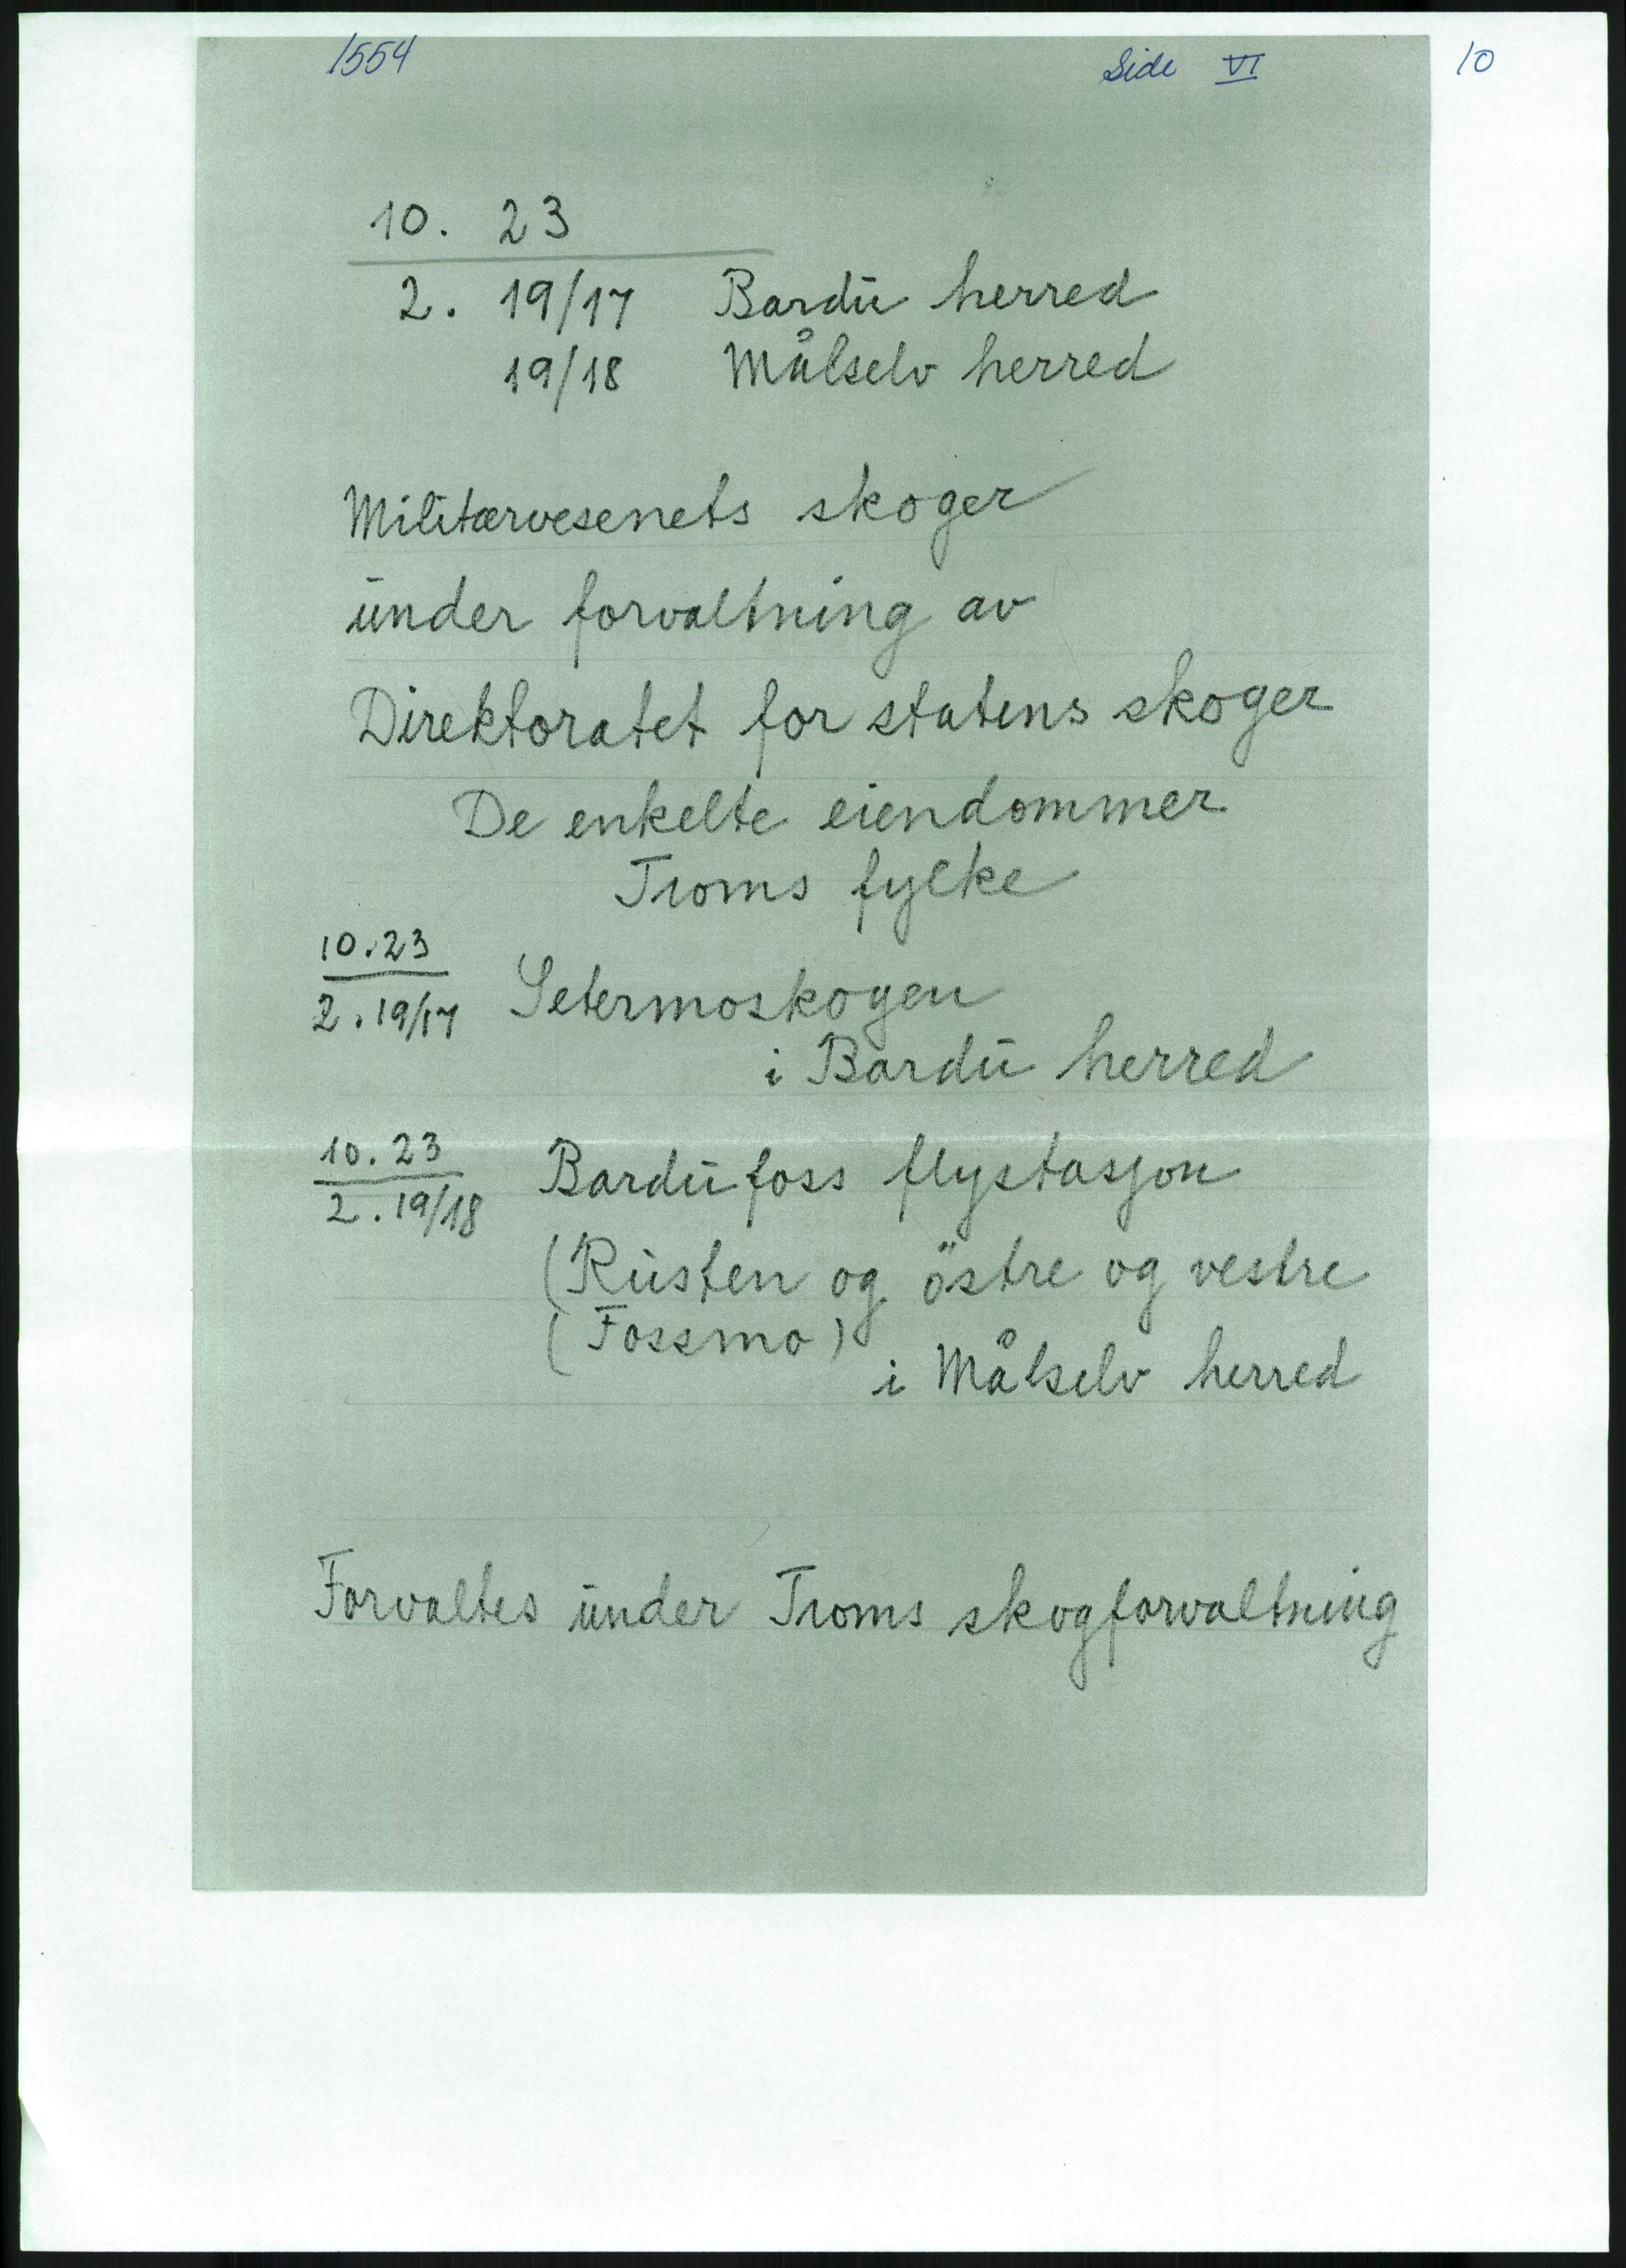 1554 Side VI 10
10. 23
2. 19/17 Bardu herred
19/18 Målselv herred
Militærvesenets skoger
under forvaltning av
Direktoratet for statens skoger
De enkelte eiendommer
Troms fylke
10.23
2. 19/17 Setermoskogen
i Bardu herred
10. 23
2. 19/18 Bardufoss flystasjon
(Rusten og östre og vestre
(Fossmo)
i Målselv herred
Forvaltes under Troms skogforvaltning